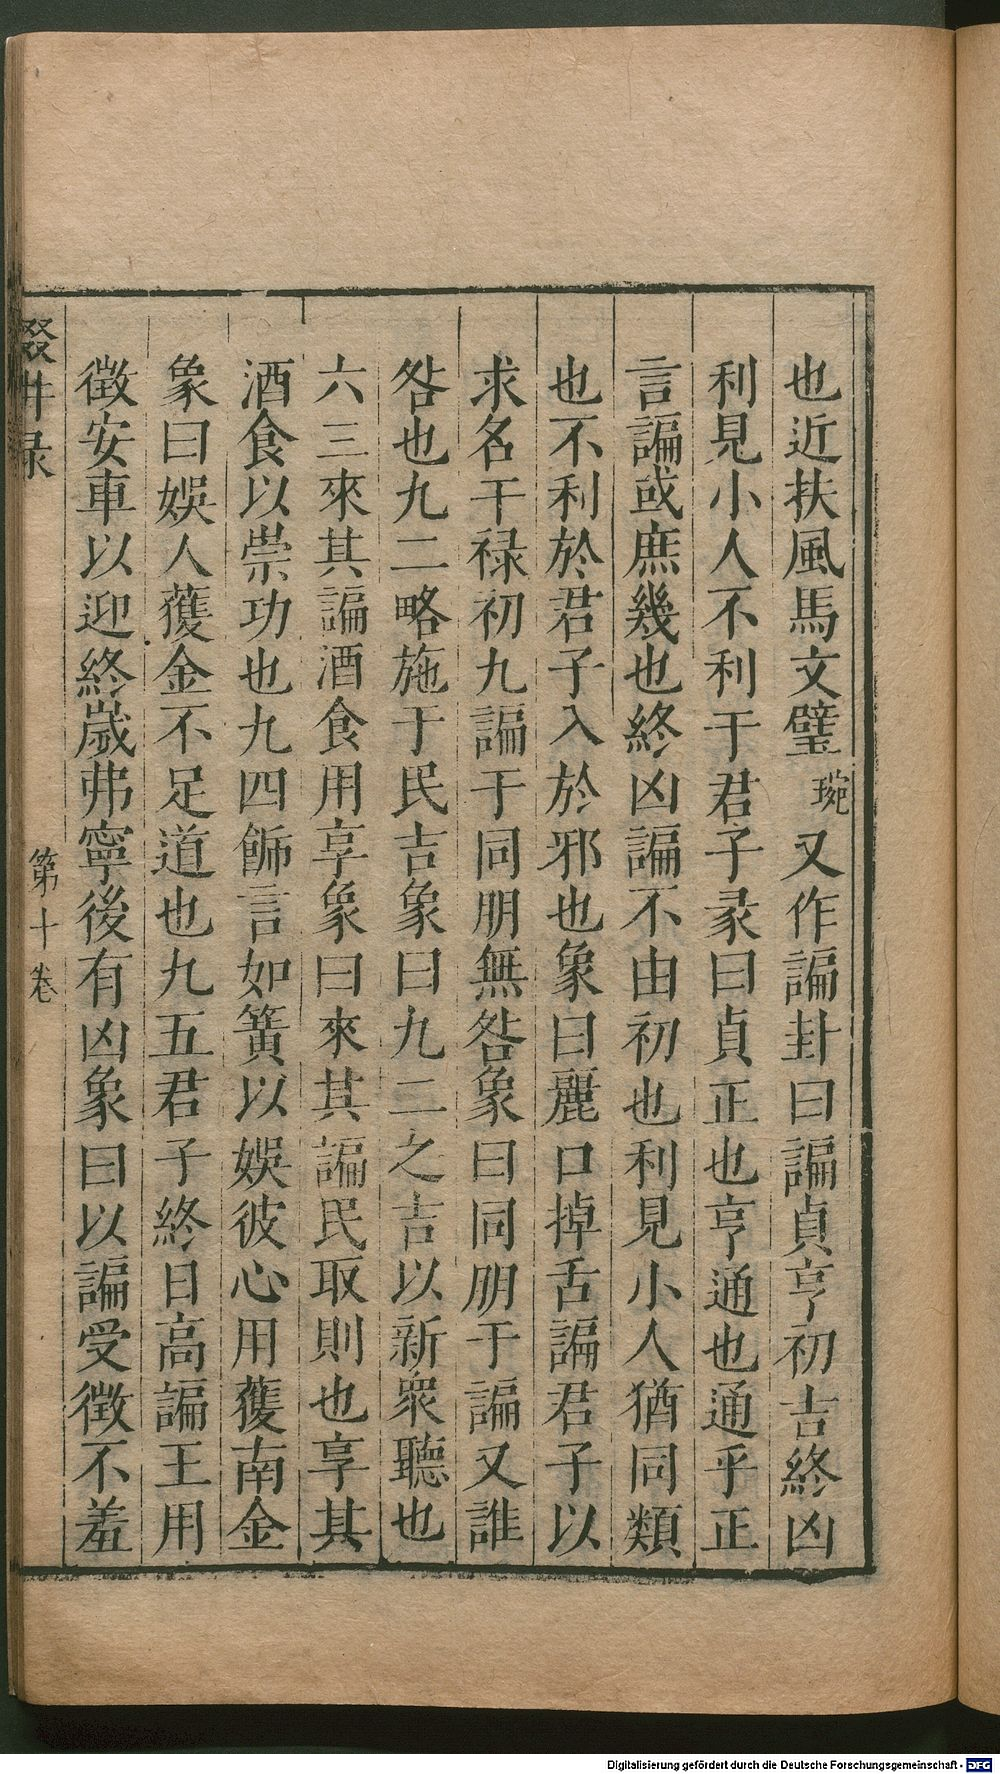 也近扶風馬文璧琬又作諞卦曰諞貞亨初吉終凶
利見小人不利于君子彖曰貞正也亨通也通乎正
言諞或庶幾也終凶諞不由初也利見小人猶同類
也不利於君子入於邪也象曰麗口掉舌諞君子以
求名干禄初九諞于同朋無咎象曰同朋于諞又誰
咎也九二略施于民吉象曰九二之吉以新衆聽也
六三來其諞酒食用享象曰來其諞民取則也享其
酒食以崇功也九四餙言如簧以娛彼心用獲南金
象曰娛人獲金不足道也九五君子終日高諞王用
徵安車以迎終嵗弗寧後有凶象曰以諞受徴不羞
輟畊录
第十卷
Digitalisierung gefördert durch die Deutsche Forschungsgemeinschaft - DFG